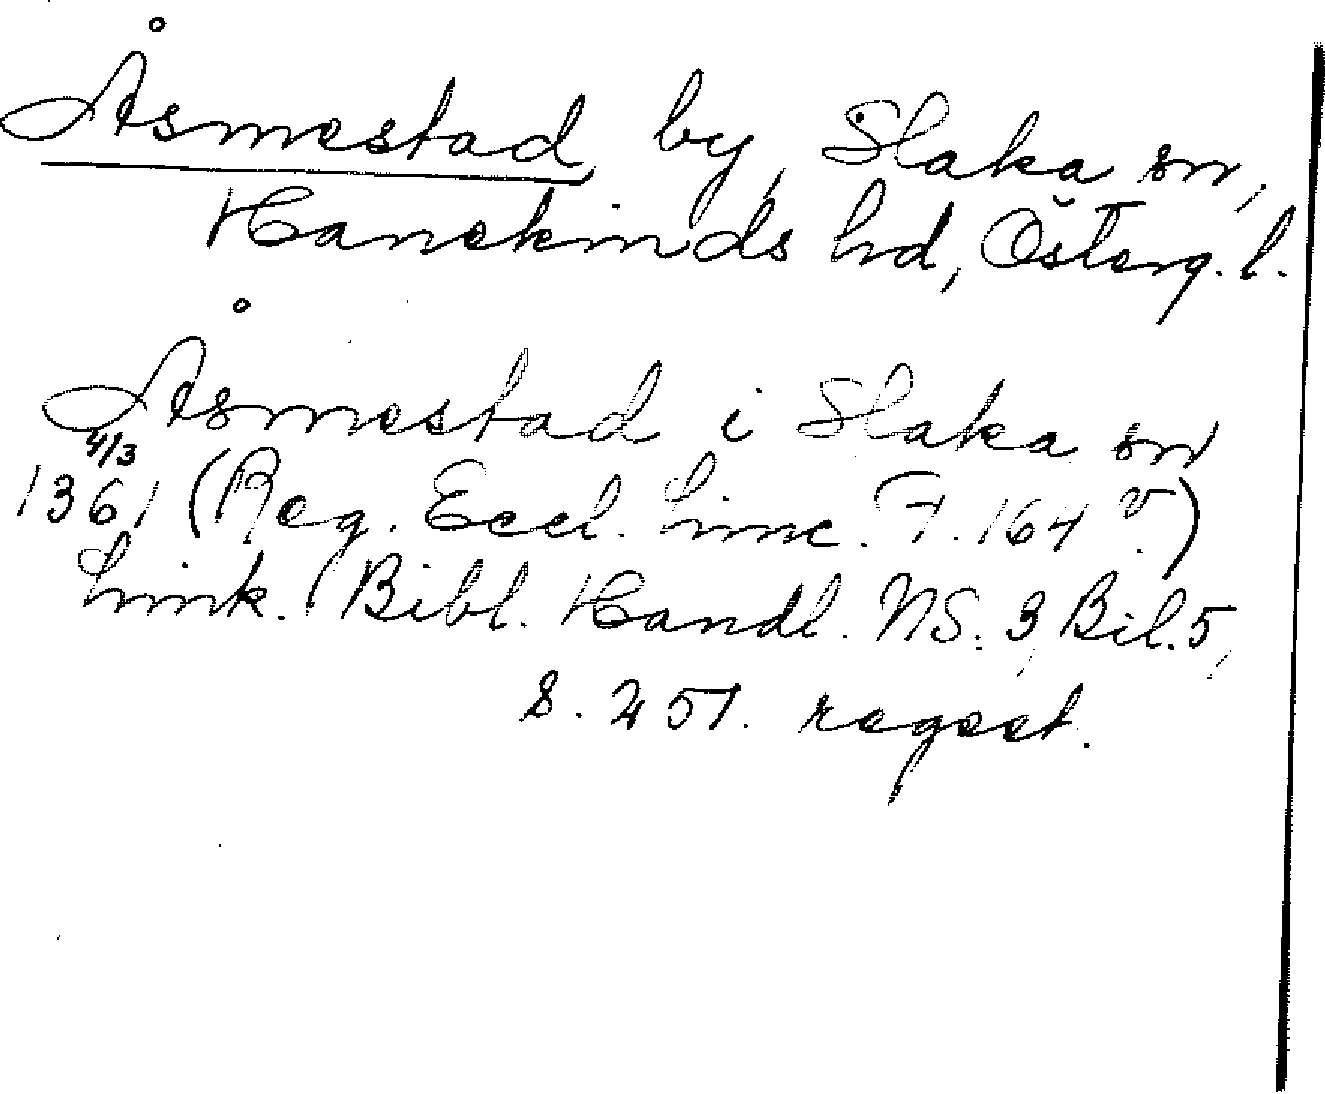 Åsmestad, by, Slaka sn,
Hanekinds hd, Österg. l.
Åsmestad i Slaka sn
4/3
1361 (Reg. Eccl. Linc. F. 164 v.)
Link. Bibl. Handl. NS. 3, Bil. 5,
s. 251. regest.